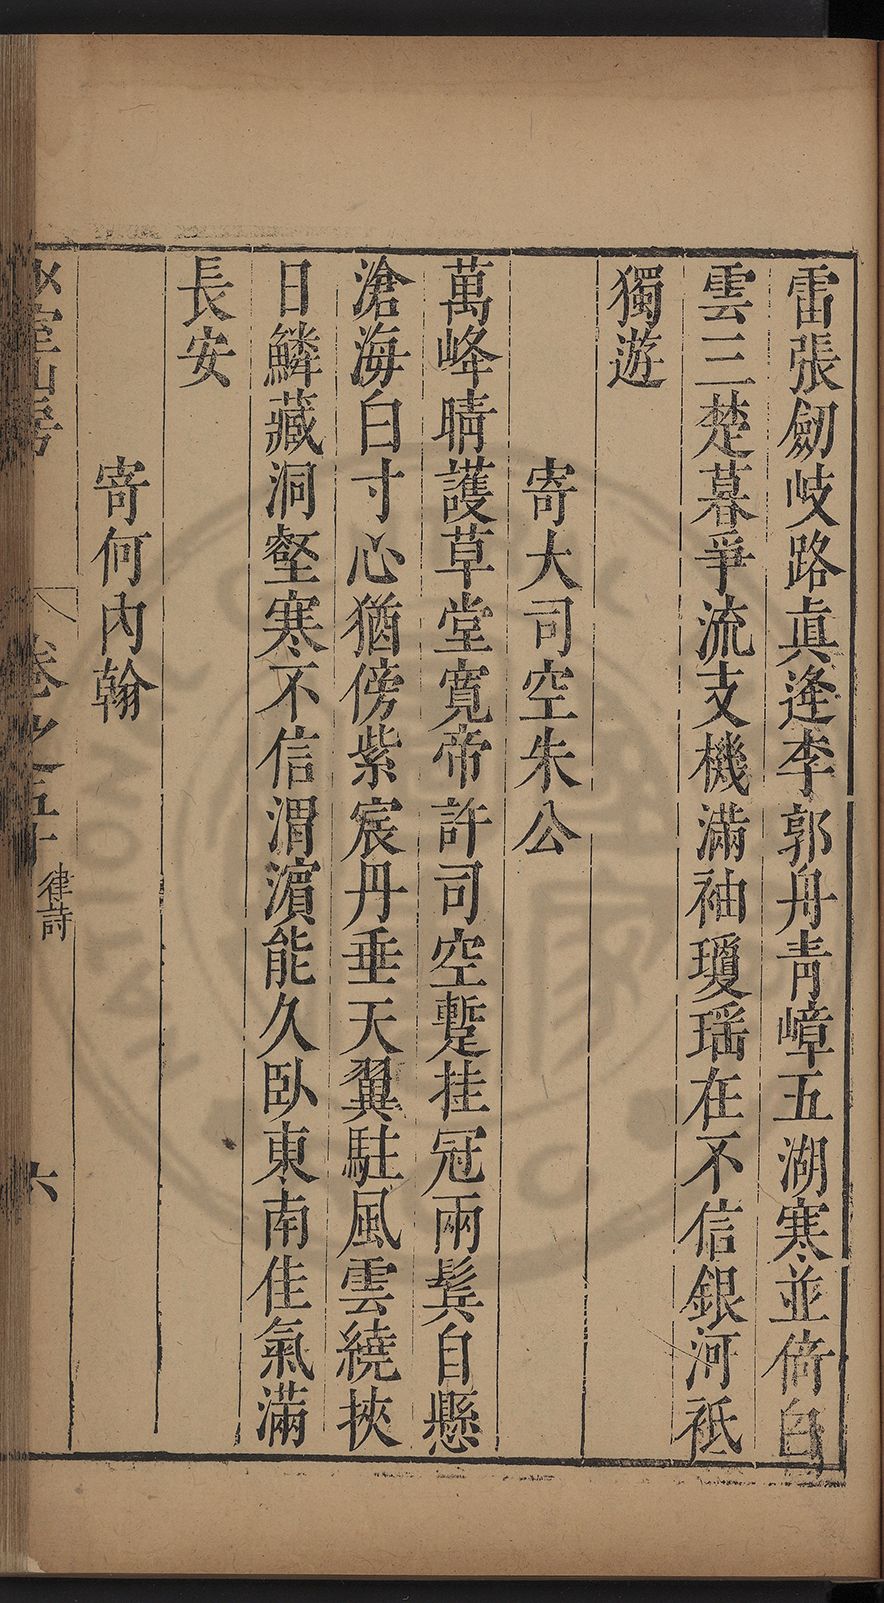 雷張劒岐路眞逄李郭舟青嶂五湖寒並倚白
雲三楚暮爭流支機滿袖瓊瑶在不信銀河衹
獨遊
寄大司空朱公
萬峰晴護草堂寛帝許司空蹔挂冠兩鬂自懸
滄海白寸心猶傍紫宸丹垂天翼駐風雲繞挾
日鱗藏洞壑寒不信渭濵能久臥東南佳氣滿
長安
寄何内翰
少室山房
卷之五十
律詩
六